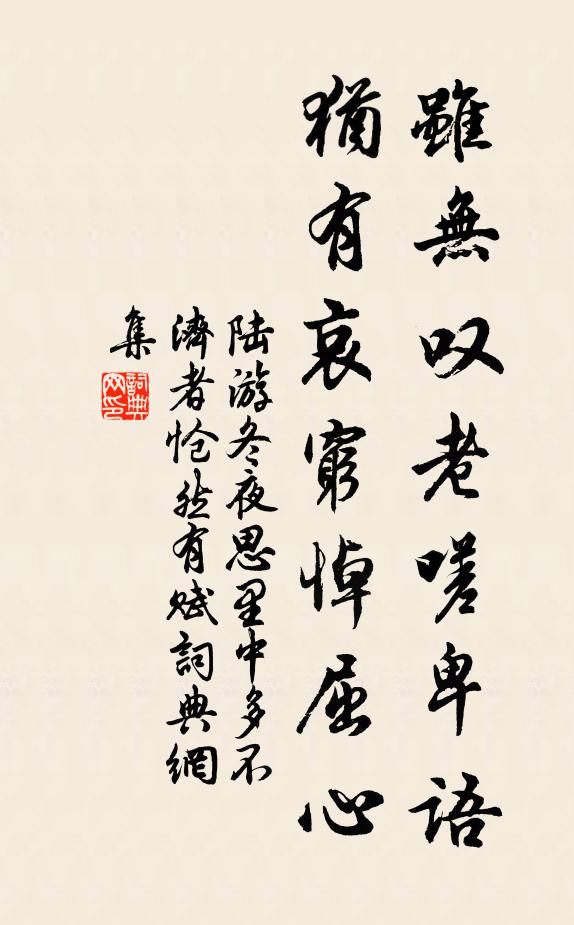 雖無叹老嗟卑語
猶有哀窮悼屈心
陆游冬夜思里中多不
濟者怆然有赋詞典網
集
詞典
网印